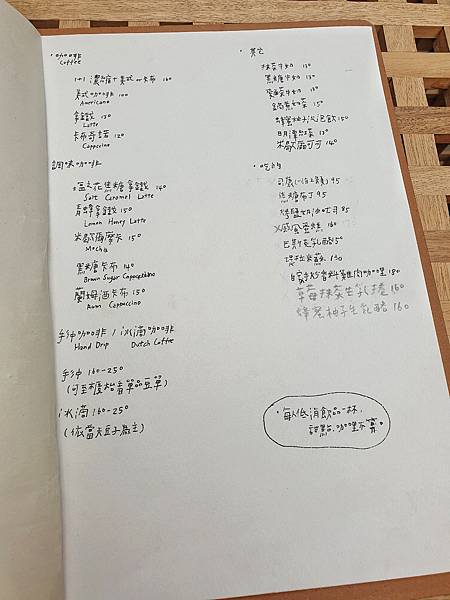 ・咖啡
Coffee
1+1 濃縮+美式or卡布 160
美式咖啡 100
Americano
拿鐵 130
Latte
卡布奇諾 120
Cappccino
調味咖啡
塩之花焦糖拿鐵 140
Salt Caramel Latte
青檸拿鐵 150
Lemon Honey Latte
米歇爾摩卡 150
Mocha
黑糖卡布 140
Brown Sugar Cappccino
蘭姆酒卡布 150
Rum Cappccino
手沖咖啡 / 冰滴咖啡
Hand Drip Dutch Coffee
手沖 160-250
(可至櫃枱看單品豆單)
冰滴 160-250
(依當天豆子為主)
・其它
抹茶牛奶 130
黑糖牛奶 130
150
蜂蜜柚子氷泡飲 150
日月潭紅茶 130
米歇爾可可 140
・吃的
司康(一份2顆) 95
焦糖布丁 95
85
戚風蛋糕 160
巴斯克乳酪
提拉米蘇
香料雞肉咖哩 180
草莓抹茶生乳捲 160
蜂蜜柚子生乳酪 160
・每人低消飲品一杯,
甜點、咖哩不算。